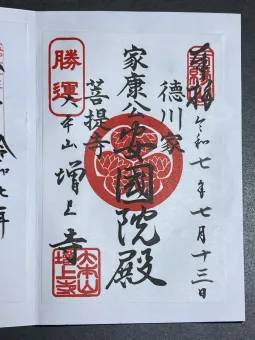 奉拝
令和七年七月十三日
徳川家
家康公 安國院殿
菩提寺
勝運
大本山 増上寺
大本山
増上寺